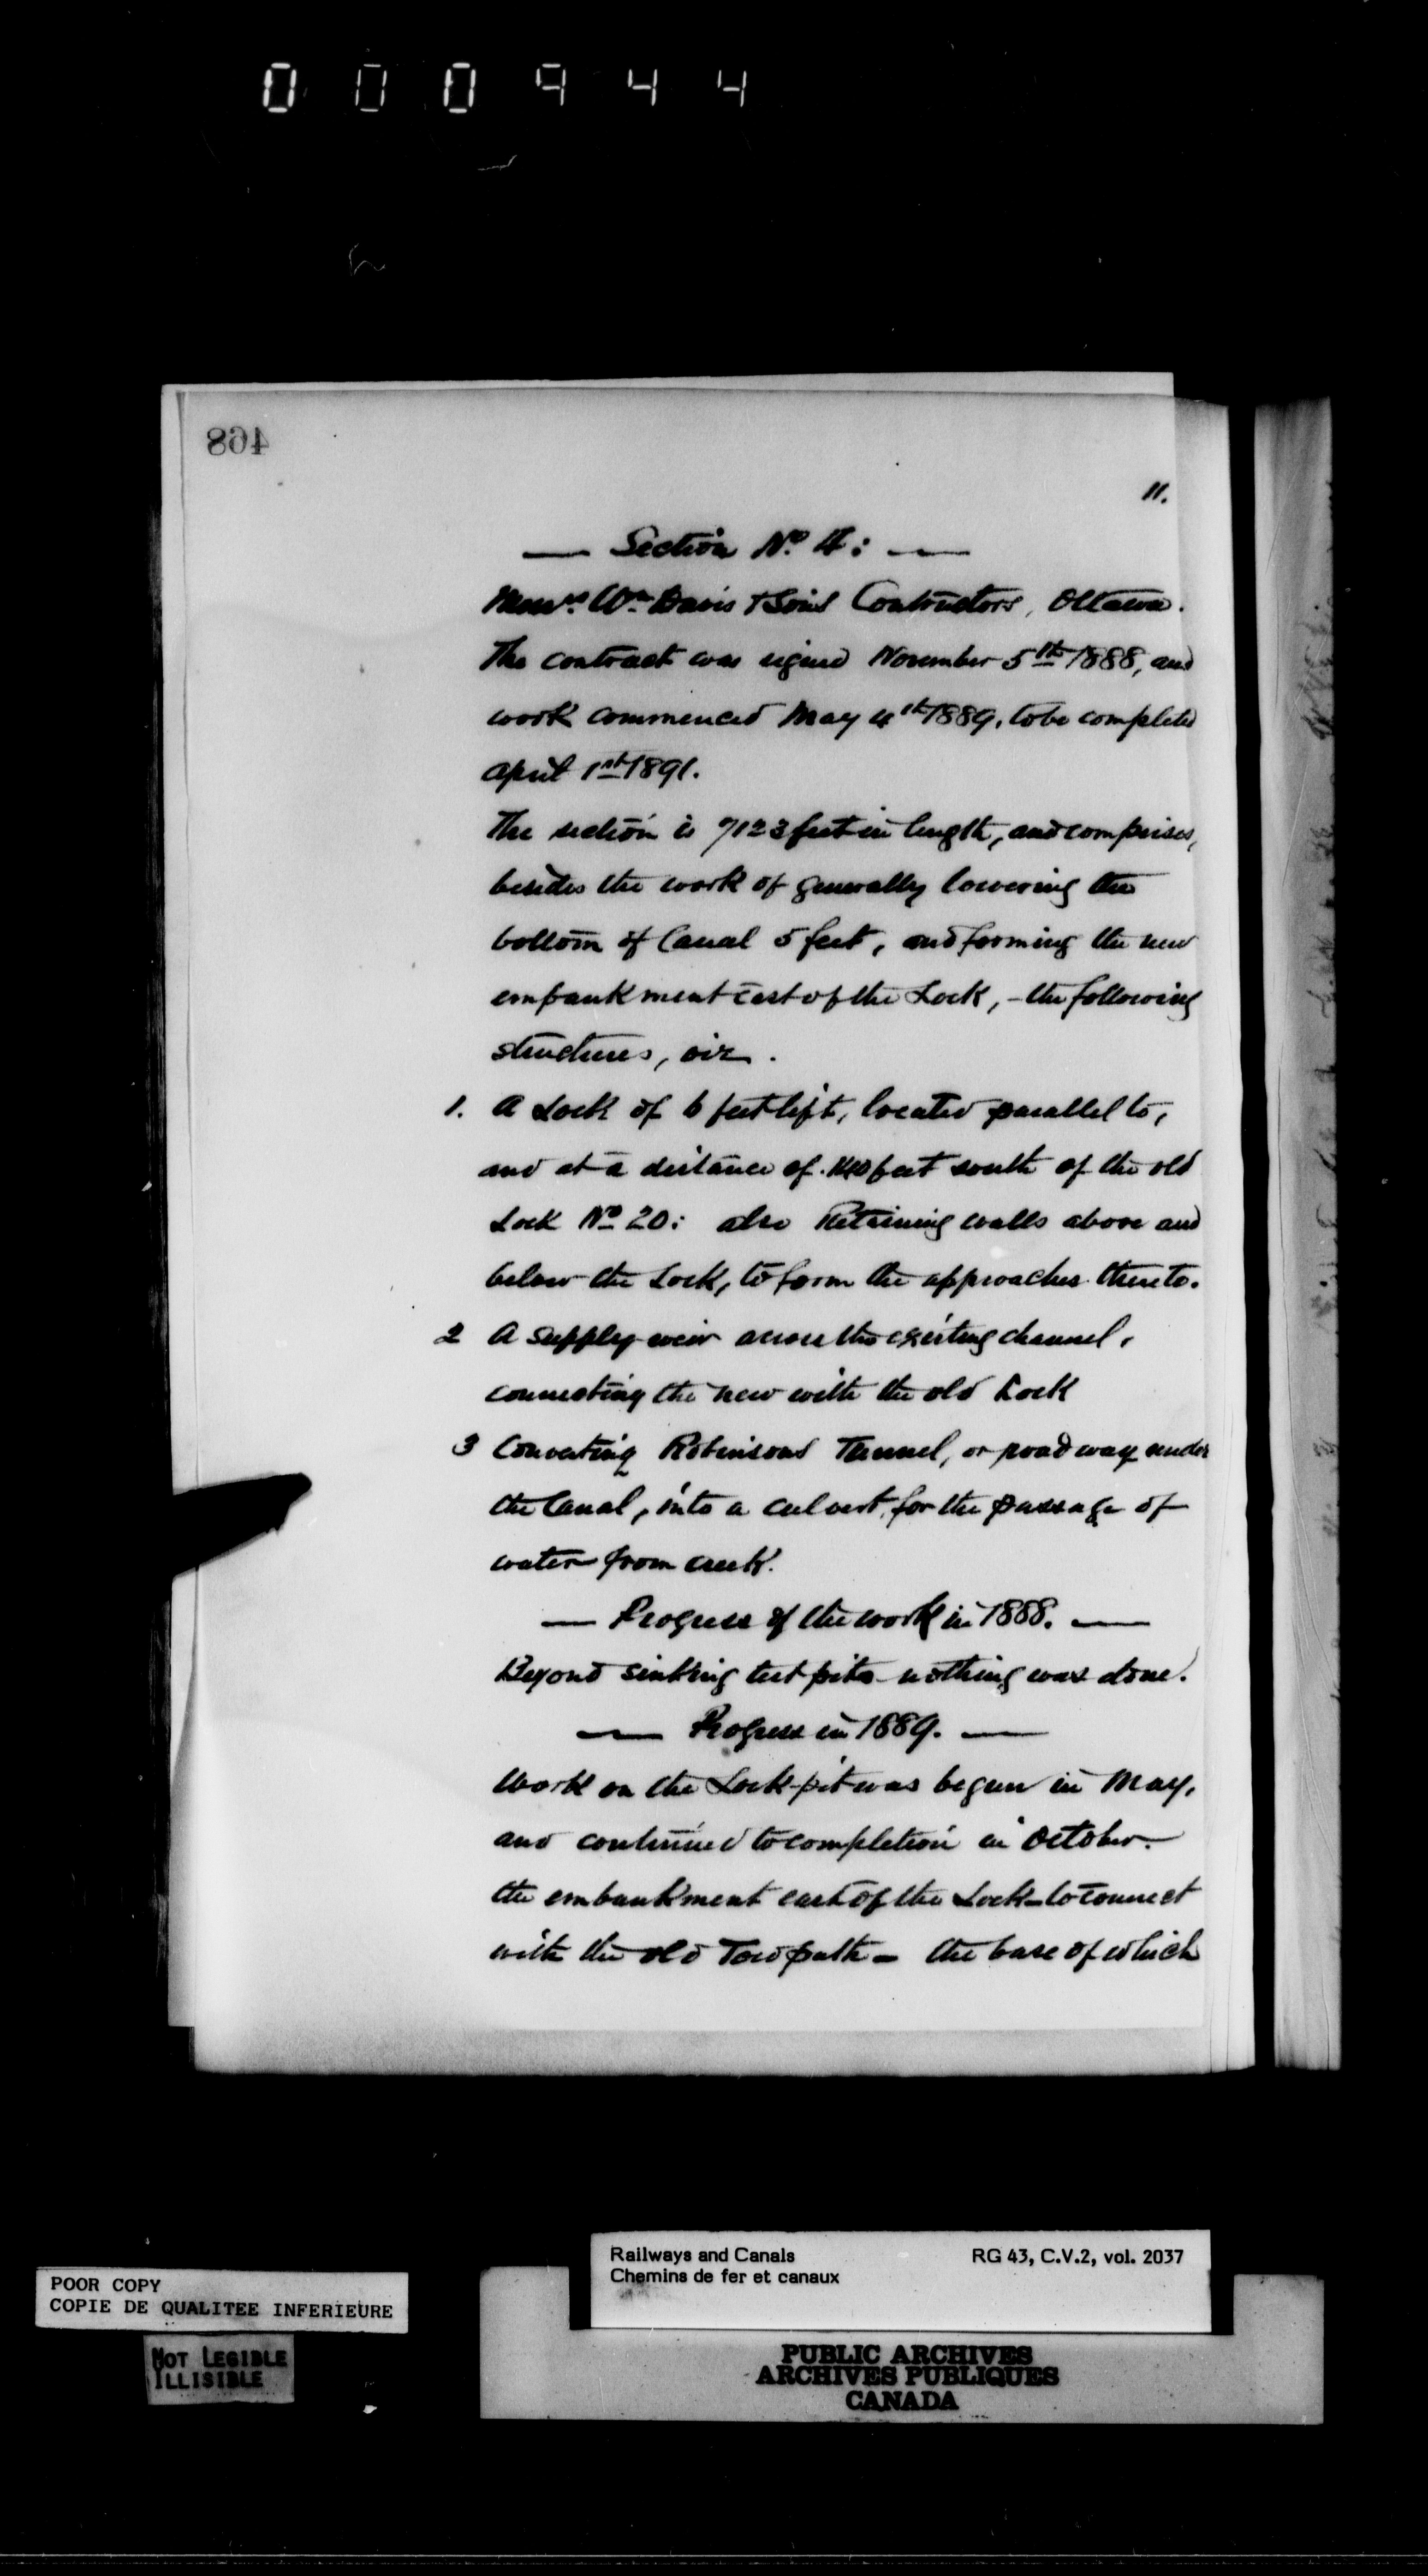 000944
468
11.
— Section No. 4: —
Messrs. Wm Davis & Sons Contractors, Ottawa.
The contract was signed November 5th 1888, and
work commenced May 4th 1889, to be completed
april 1st 1891.
The section is 7123 feet in length, and comprises,
besides the work of generally lowering the
bottom of Canal 5 feet, and forming the new
embankment East of the Lock, - the following
structures, viz.
1. A Lock of 6 feet lift, located parallel to,
and at a distance of 140 feet south of the old
Lock No 20: also Retaining walls above and
below the Lock, to form the approaches thereto.
2 A Supply-weir across the existing channel,
connecting the new with the old Lock
3 Converting Robinsons Tunnel, or roadway under
the Canal, into a culvert, for the passage of
water from creek.
— Progress of the work in 1888. —
Beyond sinking test pits nothing was done.
— Progress in 1889. —
Work on the Lock-pit was begun in May,
and continued to completion in October.
the embankment east of the Lock - to connect
with the old Towpath - the base of which
Railways and Canals
Chemins de fer et canaux
RG 43, C.V.2, vol. 2037
POOR COPY
COPIE DE QUALITEE INFERIEURE
NOT LEGIBLE
ILLISIBLE
PUBLIC ARCHIVES
ARCHIVES PUBLIQUES
CANADA